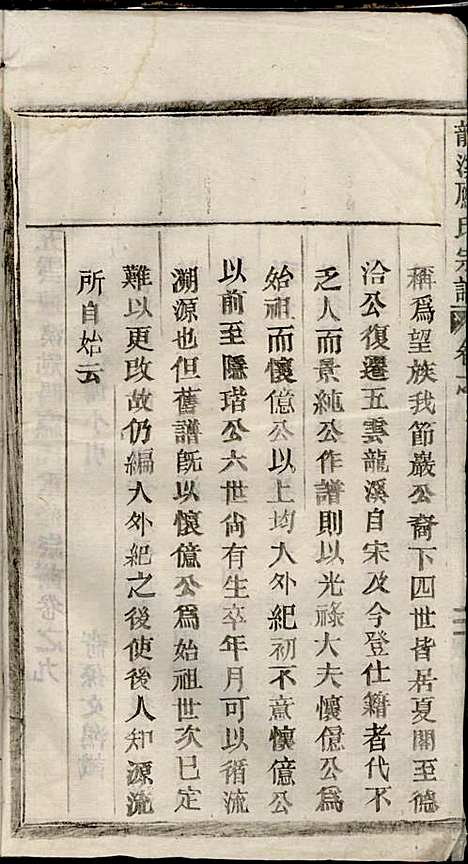 稱爲望族我節巖公裔下四世皆居夏閣至德
洽公復遷五雲龍溪自宋及今登仕籍者代不
乏人而景純公作譜則以光祿大夫懷億公爲
始祖而懷億公以上均入外紀初不意懷億公
以前至隱瑎公六世尙有生卒年月可以循流
溯源也但舊譜旣以懷億公爲始祖世次已定
難以更改故仍編入外紀之後使後人知源流
所自始云